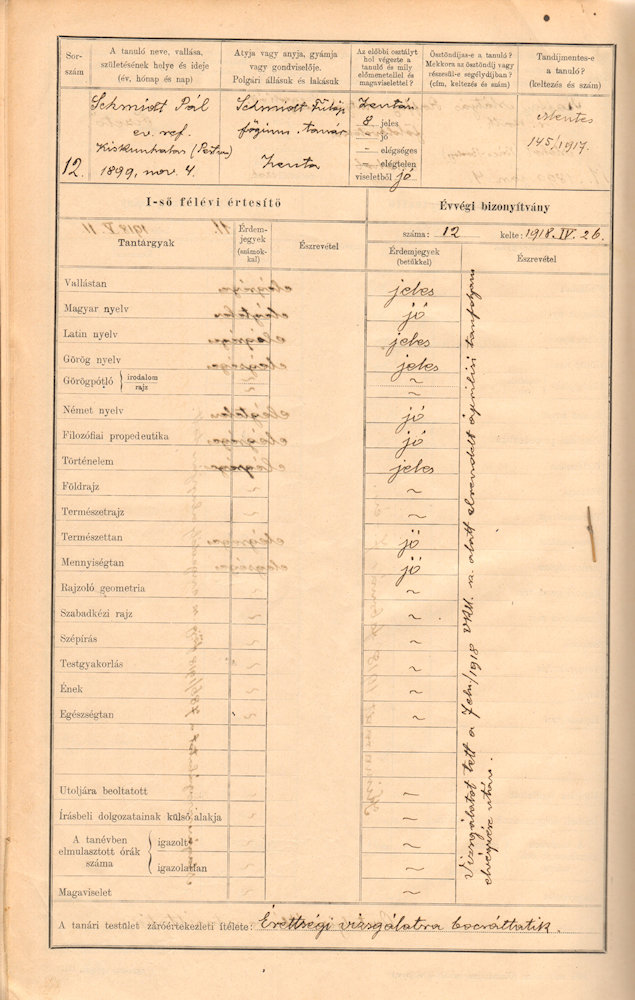 Sor-
szám
A tanuló neve, vallása,
születésének helye és ideje
(év, hónap és nap)
Atyja vagy anyja, gyámja
vagy gondviselője.
Polgári állásuk és lakásuk
Az előbbi osztályt
hol végezte a
tanuló és mily
előmenetellel és
magaviselettel?
Ösztöndíjas-e a tanuló?
Mekkora az ösztöndíj vagy
részesül-e segélydíjban?
(cím, keltezés és szám)
Tandíjmentes-e
a tanuló?
(keltezés és szám)
12.
Schmidt Pál
ev. ref.
Kiskunhalas (Pestm)
1899, nov. 4.
Schmidt Fülöp
főgimn. tanár
Zenta
Zentán
8 jeles
– jó
– elégséges
– elégtelen
viseletből jó
Mentes
145/1917.
I-ső félévi értesítő
Tantárgyak
Érdem-
jegyek
(számok-
kal)
Észrevétel
Évvégi bizonyítvány
száma: 12 kelte: 1918. IV. 26.
Érdemjegyek
(betűkkel)
Észrevétel
Vallástan jeles
Magyar nyelv jó
Latin nyelv jeles
Görög nyelv jeles
Görögpótló { irodalom ~
rajz ~
Német nyelv jó
Filozófiai propedeutika jó
Történelem jeles
Földrajz ~ ~
Természetrajz ~ ~
Természettan jó
Mennyiségtan jó
Rajzoló geometria ~ ~
Szabadkézi rajz ~ ~
Szépírás ~ ~
Testgyakorlás ~ ~
Ének ~ ~
Egészségtan ~ ~
Utoljára beoltatott ~ ~
Írásbeli dolgozatainak külső alakja ~ ~
A tanévben
elmulasztott órák
száma
{ igazolt ~ ~
igazolatlan ~ ~
Magaviselet ~ ~
Vizsgálatot tett a /1918 VKM. sz. alatt elrendelt áprilisi tanfolyam
elvégzése után.
A tanári testület záróértekezleti ítélete: Érettségi vizsgálatra bocsáttatik.